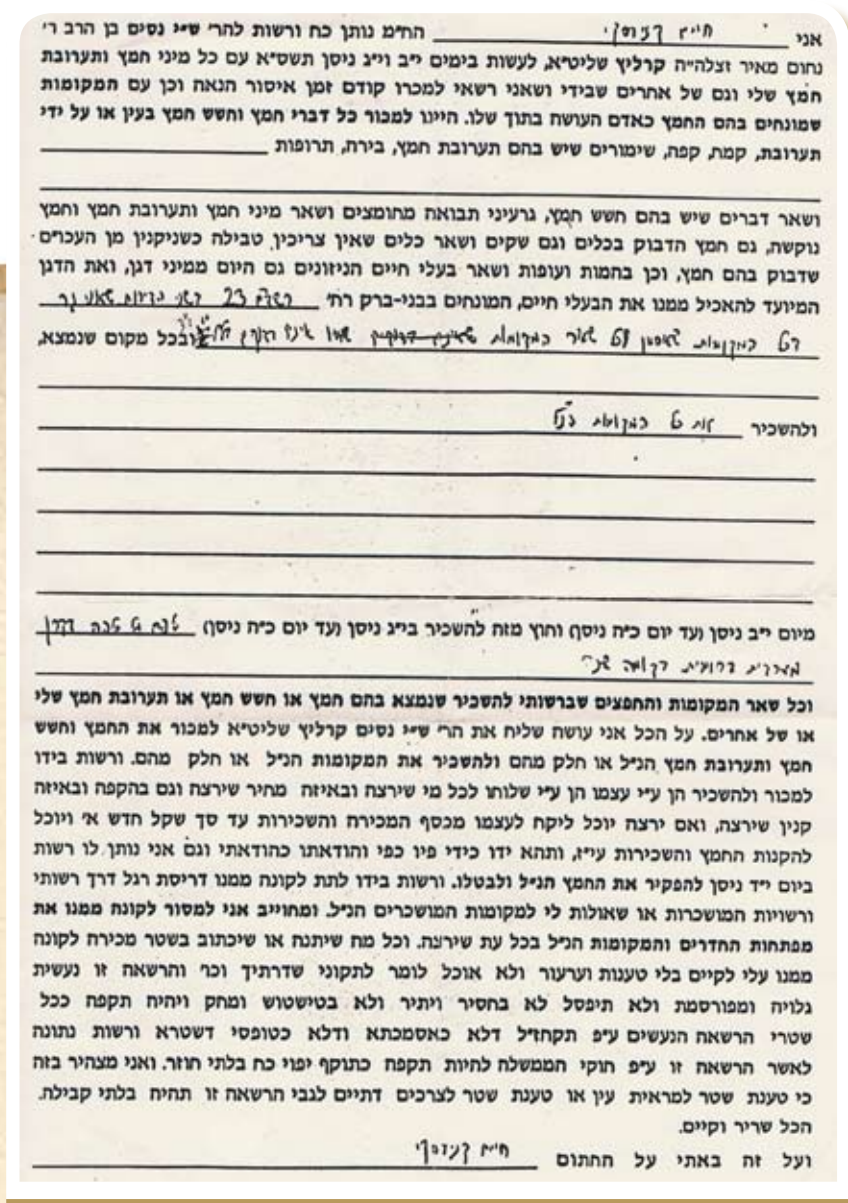 אני חיים קניבסקי החח״מ נותן כח ורשות להר׳ ש״י נסים בן הרב ר׳
נחום מאיר זצלה״ה קרליץ שליט״א, לעשות בימים י״ב וי״ג ניסן תשס״א עם כל מיני חמץ ותערובת
חמץ שלי וגם של אחרים שבידי ושאני רשאי למכרו קודם זמן איסור הנאה וכן עם המקומות
שמונחים בהם החמץ כאדם העושה בתוך שלו. היינו למכור כל דברי חמץ וחשש חמץ בעין או על ידי
תערובת, קמח, קפה, שימורים שיש בהם תערובת חמץ, בירה, תרופות
ושאר דברים שיש בהם חשש חמץ, גרעיני תבואה מחומצים ושאר מיני חמץ ותערובת חמץ וחמץ
נוקשה, גם חמץ הדבוק בכלים וגם שקים ושאר כלים שאין צריכין טבילה כשניקנין מן העכו״ם
שדבוק בהם חמץ, וכן בהמות ועופות ושאר בעלי חיים הניזונים גם היום ממיני דגן, ואת הדגן
המיועד להאכיל ממנו את הבעלי חיים, המונחים בבני-ברק רח׳ רשב״ם 23 שאני גר
בכל המקומות שאר המקומות ובכל מקום שנמצא,
ולהשכיר את כל המקומות הנ״ל
מיום י״ב ניסן (עד יום כ״ה ניסן) וחוץ מזה להשכיר בי״ג ניסן (עד יום כ״ה ניסן)
מזרחית דרומית בקומה שני׳
וכל שאר המקומות והחפצים שברשותי להשכיר שנמצא בהם חמץ או חשש חמץ או תערובת חמץ שלי
או של אחרים. על הכל אני עושה שליח את הר׳ ש״י נסים קרליץ שליט״א למכור את החמץ וחשש
חמץ ותערובת חמץ הנ״ל או חלק מהם ולהשכיר את המקומות הנ״ל או חלק מהם. ורשות בידו
למכור ולהשכיר הן ע״י עצמו הן ע״י שלוחו לכל מי שירצה ובאיזה מחיר שירצה וגם בהקפה ובאיזה
קנין שירצה, ואם ירצה יוכל ליקח לעצמו מכסף המכירה והשכירות עד סך שקל חדש א׳ ויוכל
להקנות החמץ והשכירות עי״ז, ותהא ידו כידי פיו כפי והודאתו כהודאתי וגם אני נותן לו רשות
ביום י״ד ניסן להפקיר את החמץ הנ״ל ולבטלו. ורשות בידו לתת לקונה ממנו דריסת רגל דרך רשותי
ורשויות המושכרות או שאולות לי למקומות המושכרים הנ״ל. ומחוייב אני למסור לקונה ממנו את
מפתחות החדרים והמקומות הנ״ל בכל עת שירצה. וכל מה שיתנה או שיכתוב בשטר מכירה לקונה
ממנו עלי לקיים בלי טענות וערעור ולא אוכל לומר לתקוני שדרתיך וכו׳ והרשאה זו נעשית
גלויה ומפורסמת ולא תיפסל לא בחסיר ויתיר ולא בטישטוש ומחק ויהיה תקפה ככל
שטרי הרשאה הנעשים ע״פ תקחז״ל דלא כאסמכתא ודלא כטופסי דשטרא ורשות נתונה
לאשר הרשאה זו ע״פ חוקי הממשלה להיות תקפה כתוקף יפוי כח בלתי חוזר. ואני מצהיר בזה
כי טענת שטר למראית עין או טענת שטר לצרכים דתיים לגבי הרשאה זו תהיה בלתי קבילה.
הכל שריר וקיים.
ועל זה באתי על החתום חיים קניבסקי